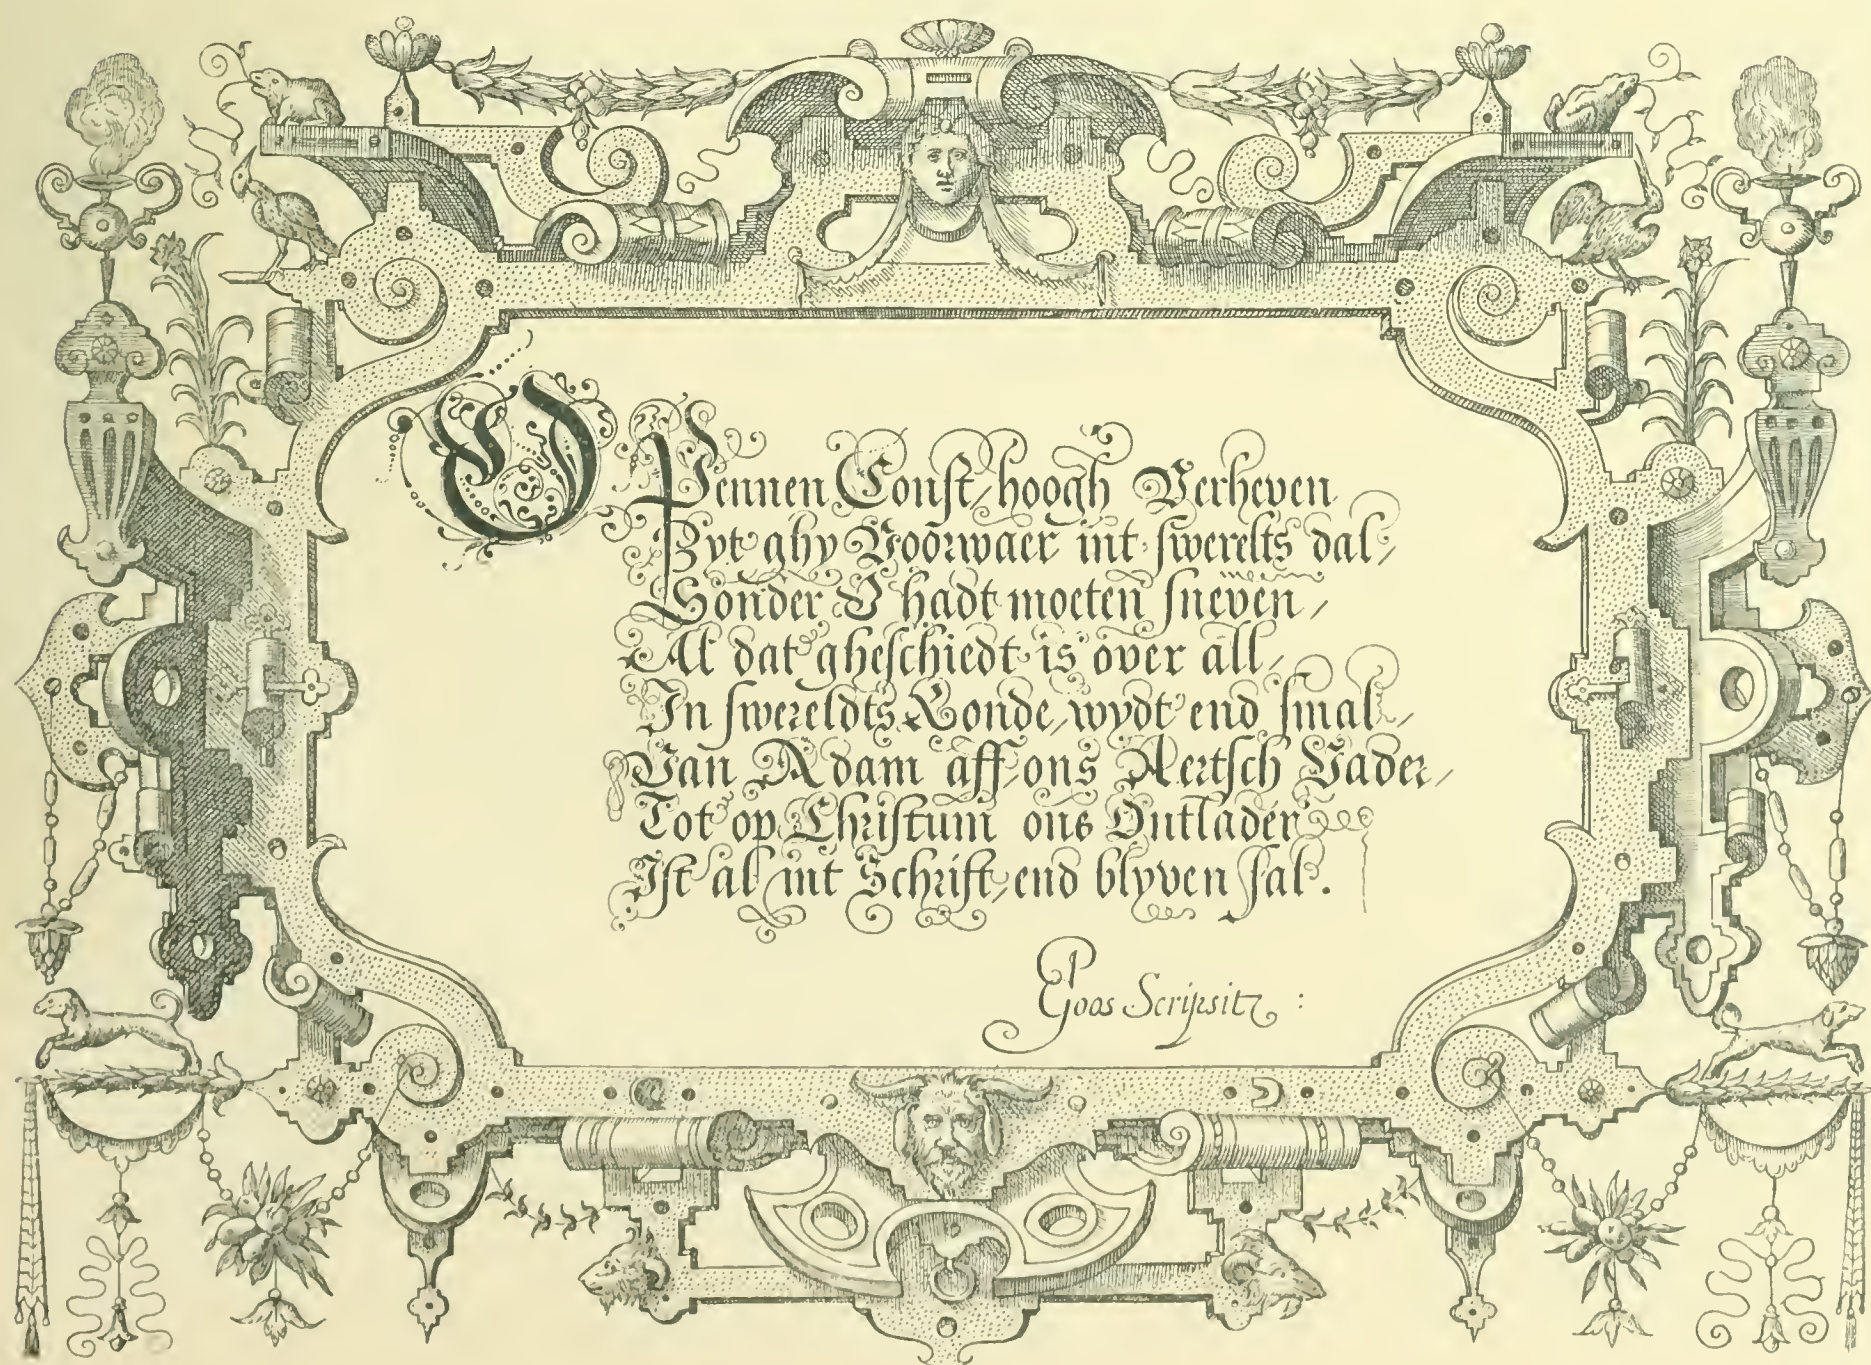 O Pennen Const, hoogh Verheven
Zyt ghy Voorwaer int swerelts dal,
Sonder V hadt moeten sneven,
Al dat gheschiedt is over all,
In swereldts Ronde, wydt end smal,
Van Adam aff, ons Aertsch Vader,
Tot op Christum ons Ontlader
Ist al int Schrift, end blyven sal.
P Goos Scripsit :